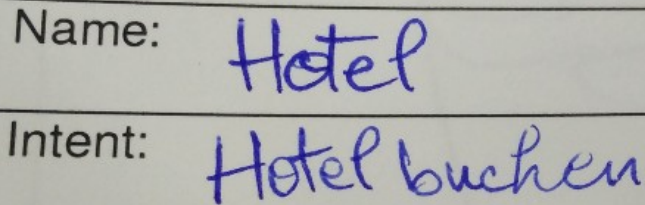 Name: Hotel
Intent: Hotel buchen